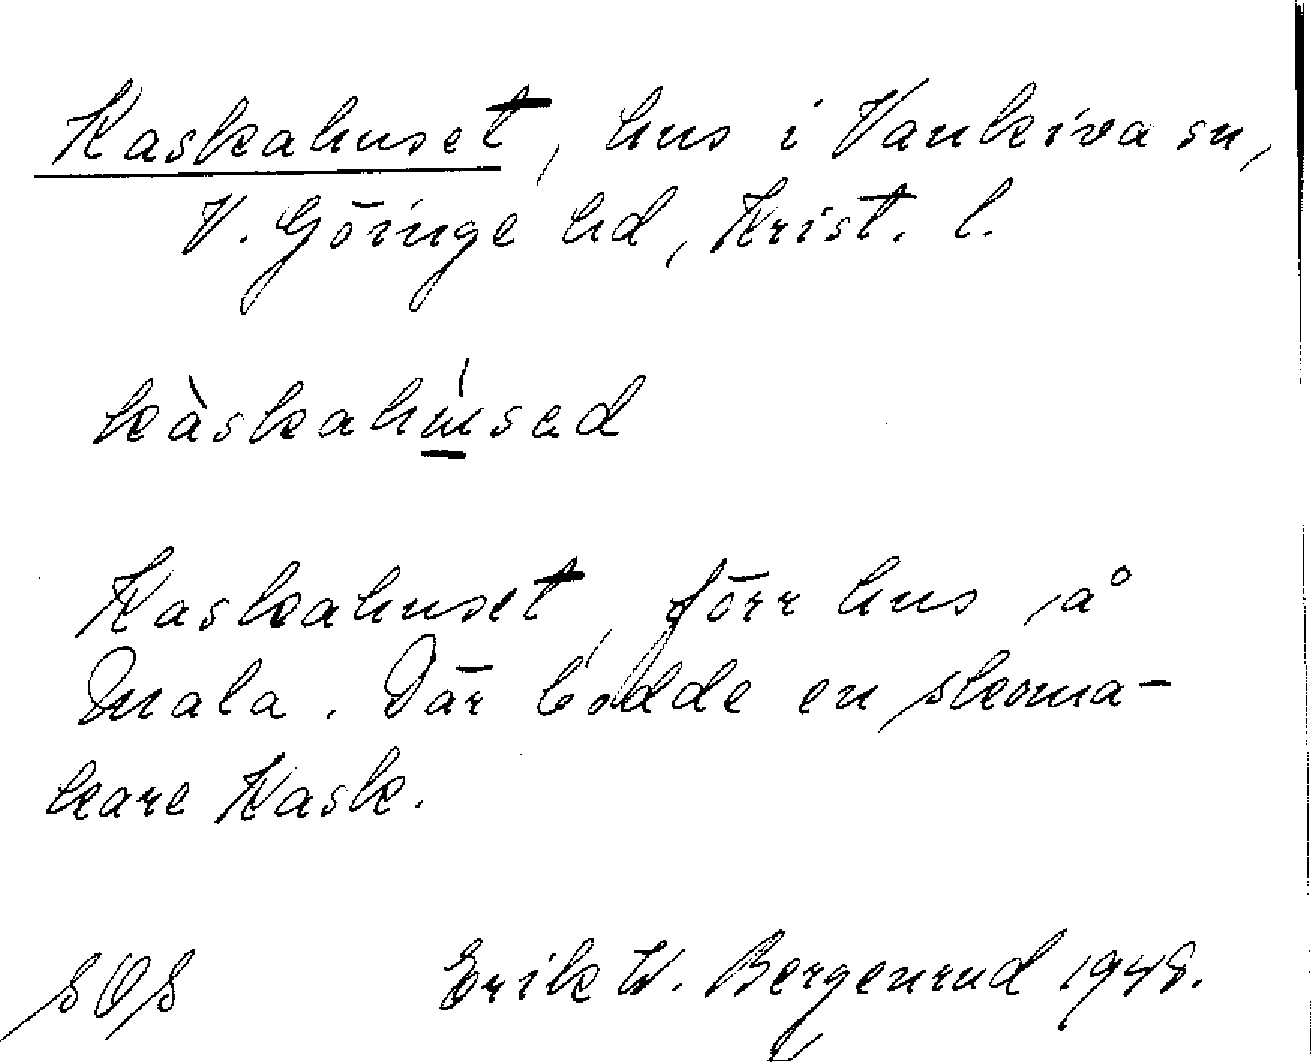 Kaskahuset, hus i Vankiva sn,
V. Göinge hd, Krist. l.
kàskahúsad
Kaskahuset, förr hus å
Mala. Där bodde en skoma-
kare Kask.
SOS Erik W. Bergenrud 1948.